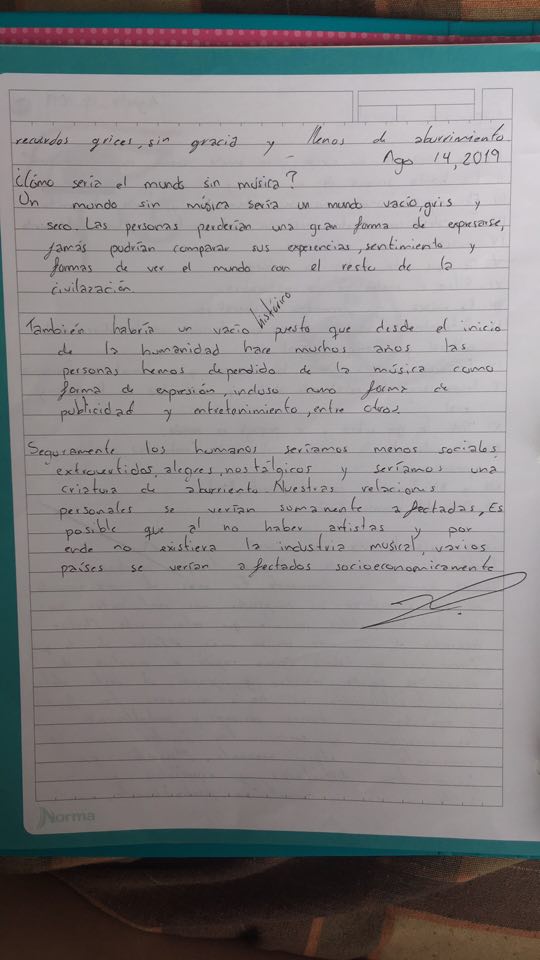 recuerdos grices, sin gracia y llenos de aburrimiento
Ago 14, 2019
¿Cómo sería el mundo sin música?
Un mundo sin música sería un mundo vacío, gris y
seco. Las personas perderían una gran forma de expresarse,
jamás podrían comparar sus experiencias, sentimiento y
formas de ver el mundo con el resto de la
civilazación.
También habría un vacío histórico puesto que desde el inicio
de la humanidad hace muchos años las
personas hemos dependido de la música como
forma de expresión, incluso como forma de
publicidad y entretenimiento, entre otros.
Seguramente los humanos seríamos menos sociales,
extrovertidos, alegres, nostálgicos y seríamos una
criatura de aburriento. Nuestras relaciones
personales se verían sumamente afectadas, Es
posible que al no haber artistas y por
ende no existiera la industria musical, varios
países se verían afectados socioeconomicamente
Norma